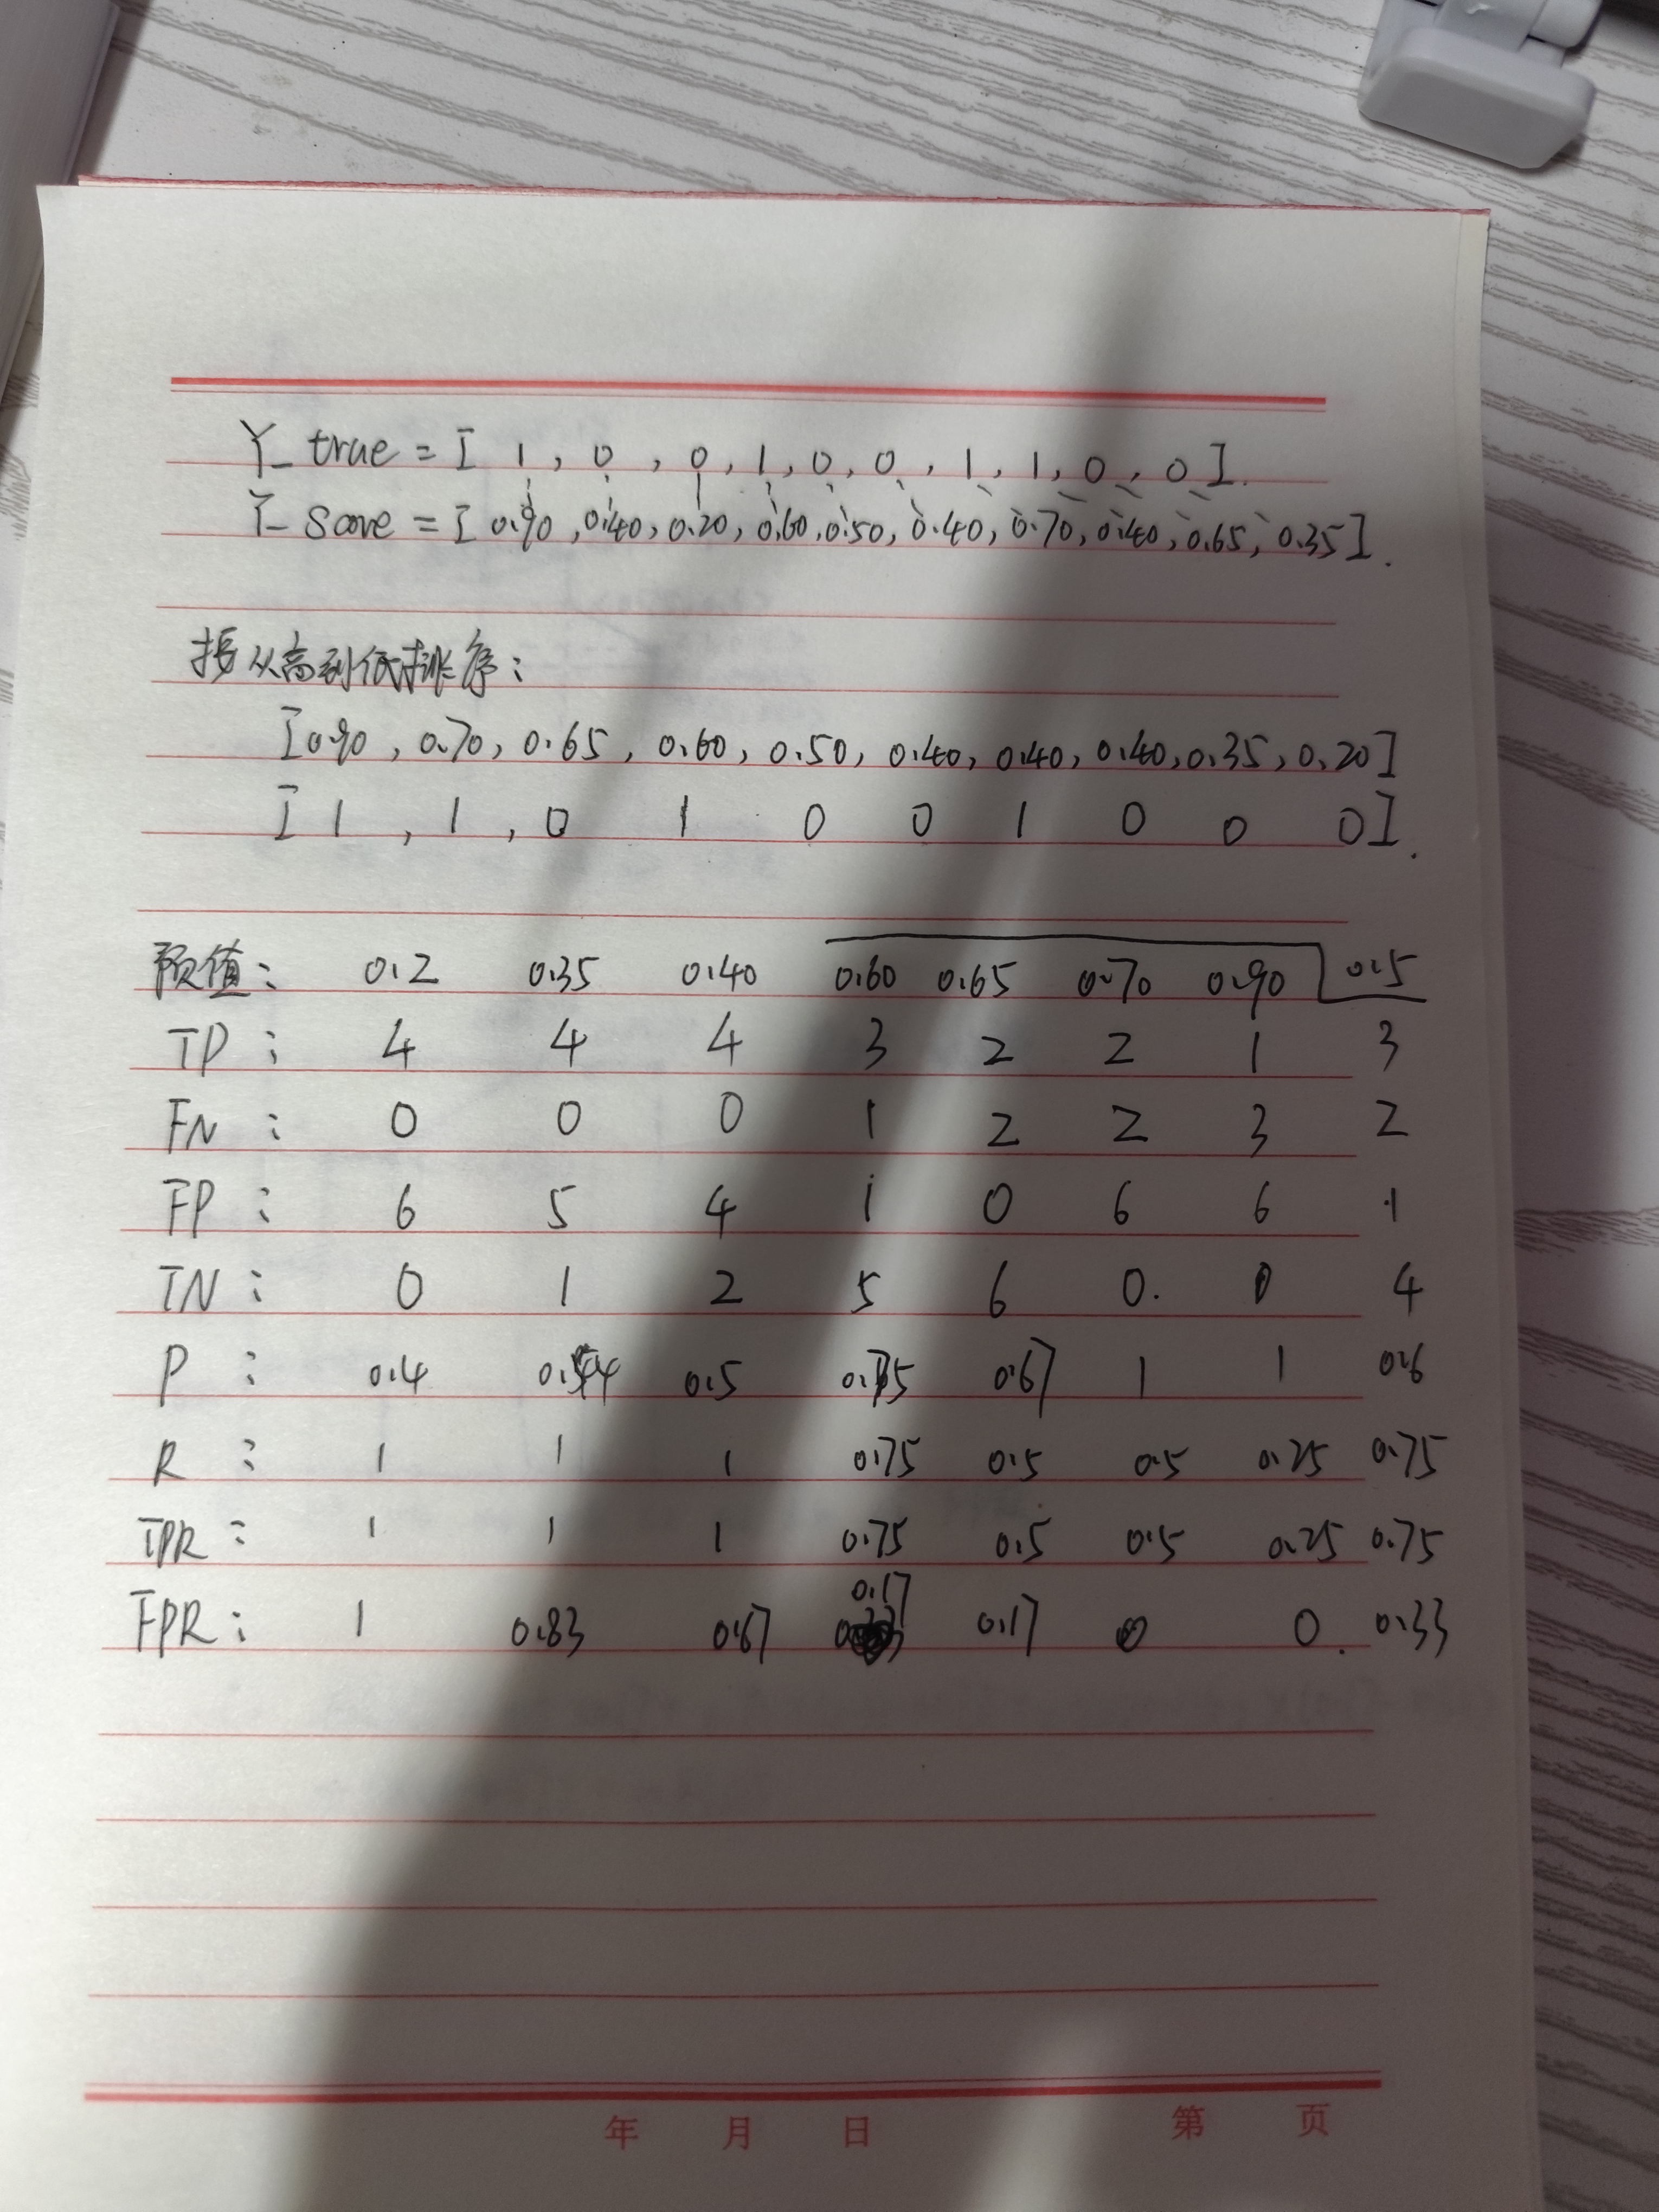 Y_true = [ 1 , 0 , 0 , 1 , 0 , 0 , 1 , 1 , 0 , 0 ].
Y_score = [ 0.90 , 0.40 , 0.20 , 0.60 , 0.50 , 0.40 , 0.70 , 0.40 , 0.65 , 0.35 ].
按从高到低排序：
[0.90 , 0.70 , 0.65 , 0.60 , 0.50 , 0.40 , 0.40 , 0.40 , 0.35 , 0.20 ]
[ 1 , 1 , 0 1 0 0 1 0 0 0 ].
预值： 0.2 0.35 0.40 0.60 0.65 0.70 0.90 0.5
TP : 4 4 4 3 2 2 1 3
FN : 0 0 0 1 2 2 3 2
FP : 6 5 4 1 0 6 6 1
TN : 0 1 2 5 6 0. 0 4
P : 0.4 0.44 0.5 0.75 0.67 1 1 0.6
R : 1 1 1 0.75 0.5 0.5 0.25 0.75
TPR : 1 1 1 0.75 0.5 0.5 0.25 0.75
FPR : 1 0.83 0.67 0.17 0.17 0 0. 0.33
年 月 日 第 页